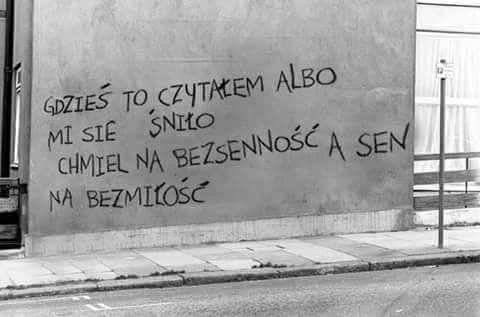 GDZIEŚ TO CZYTAŁEM ALBO
MI SIE ŚNIŁO
CHMIEL NA BEZSENNOŚĆ A SEN
NA BEZMIŁOŚĆ